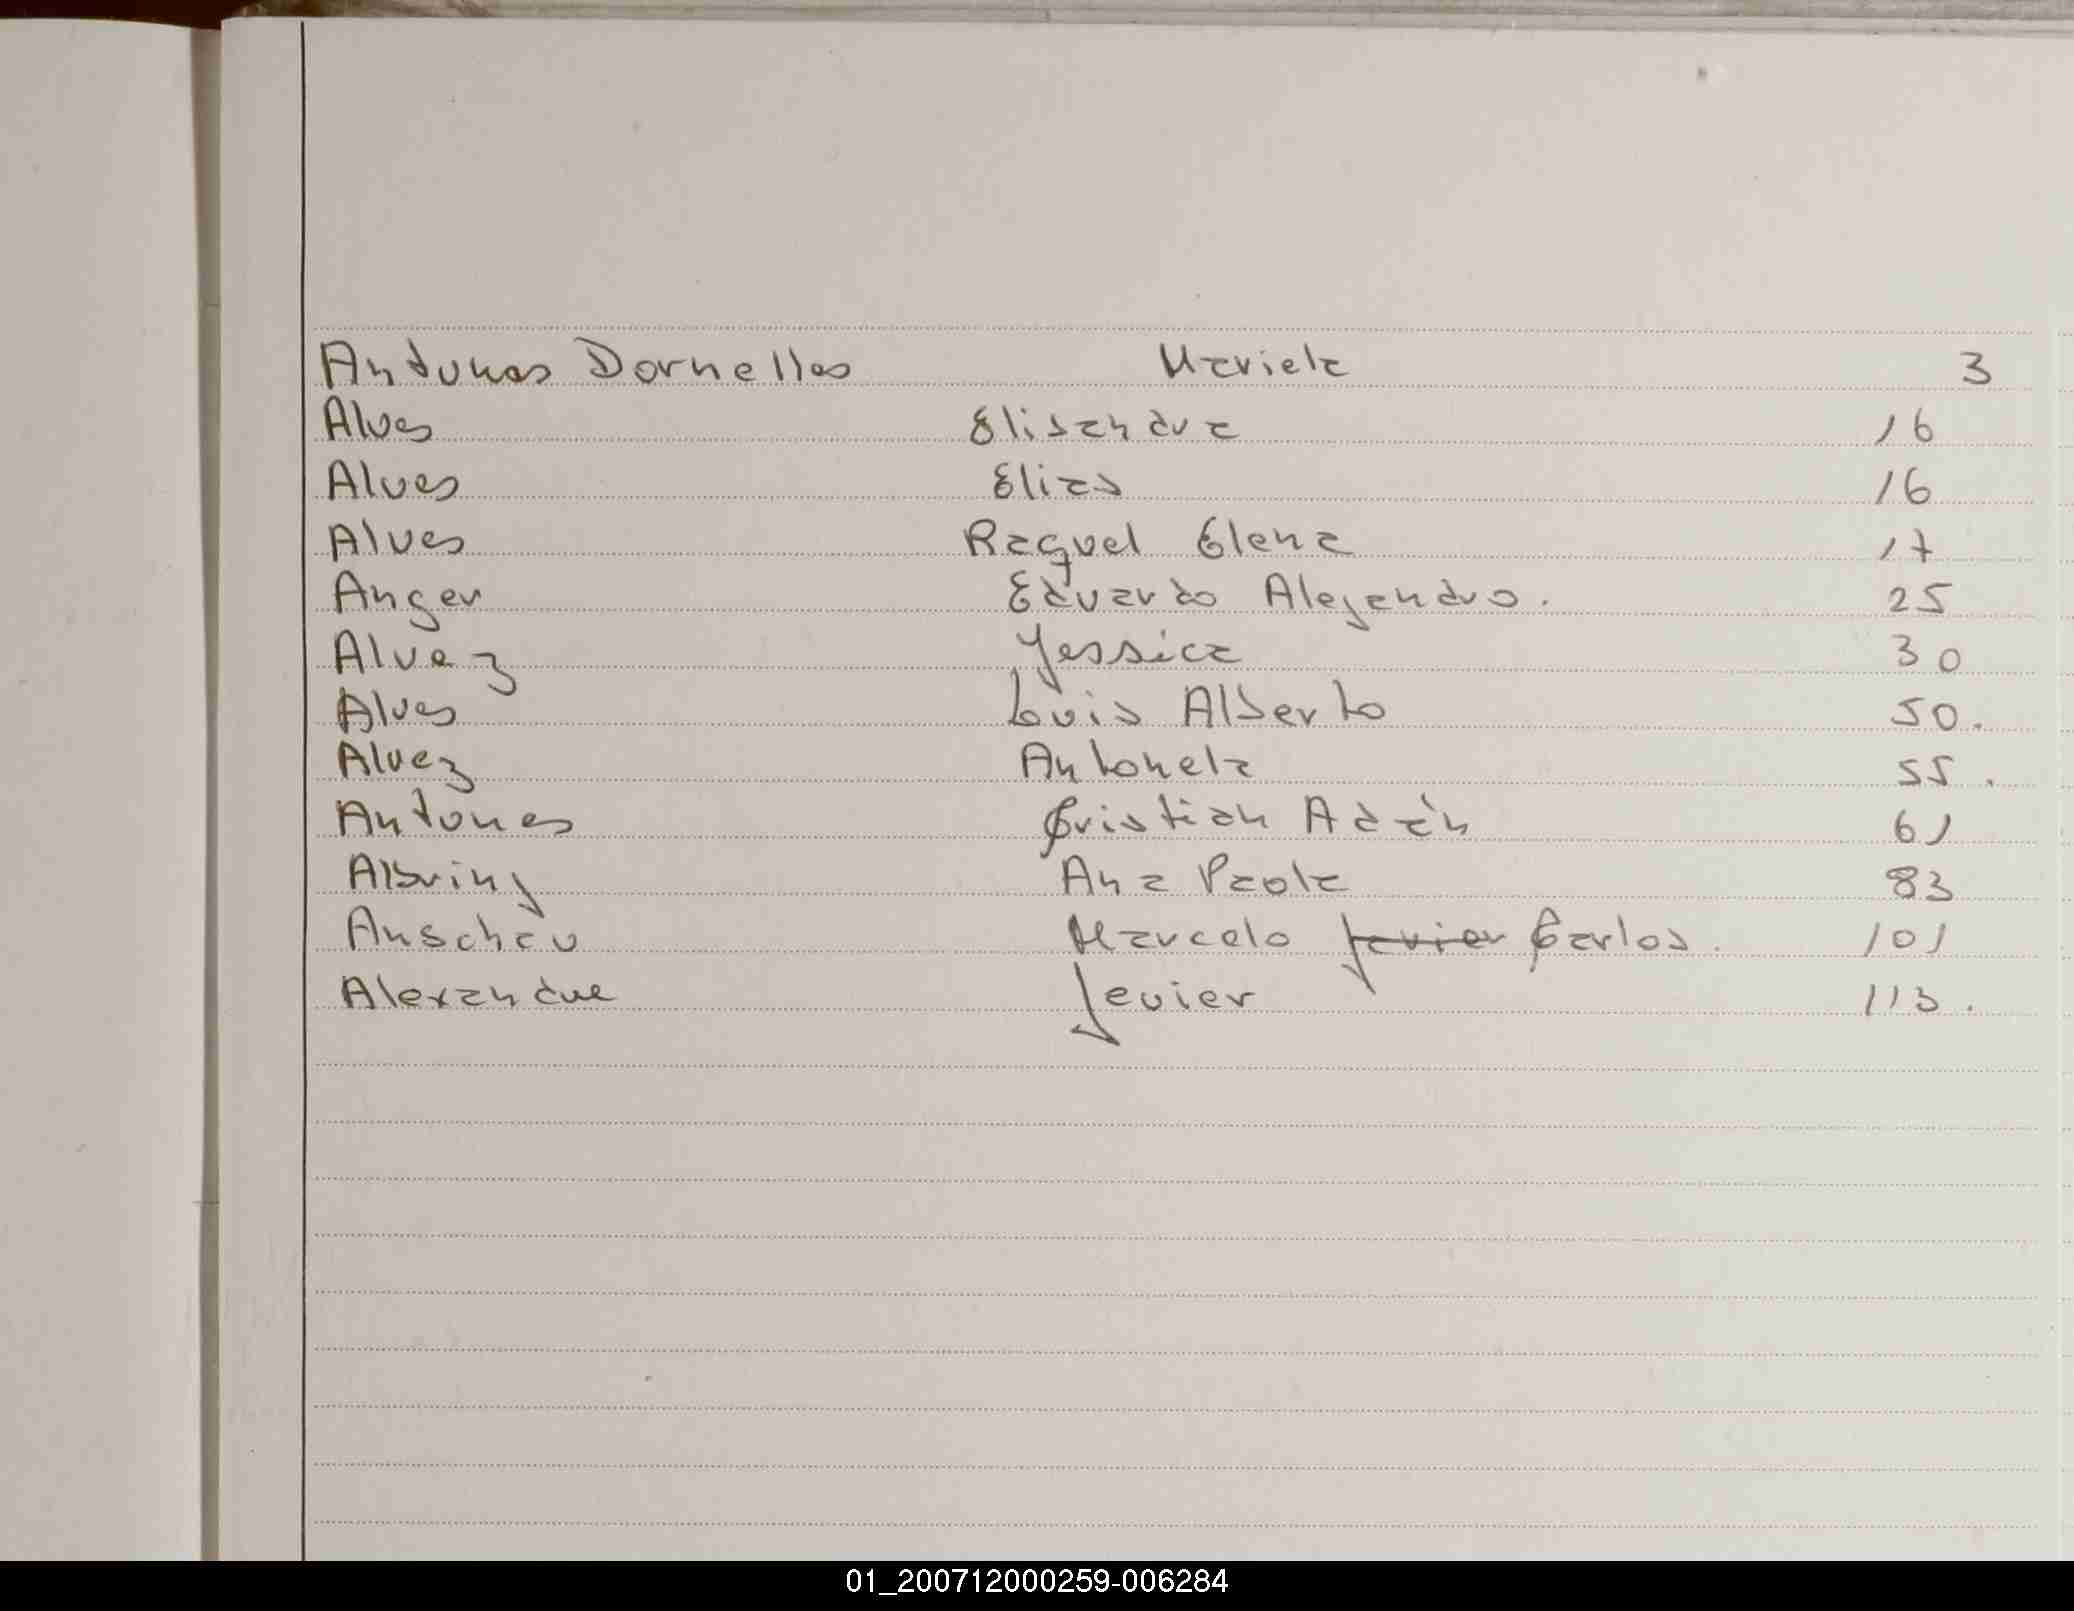 Antunes Dornelles Mariela 3
Alves Elisandra 16
Alves Elias 16
Alves Raquel Elena 17
Anger Eduardo Alejandro. 25
Alvez Yessica 30
Alves Luis Alberto 50.
Alvez Antonela 55.
Antunes Cristian Adán 61
Albring Ana Paola 83
Anschau Marcelo Javier Carlos. 101
Alexandre Javier 113.
01_200712000259-006284